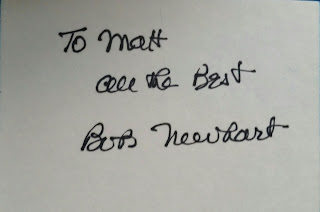 To Matt
all the Best
Bob Newhart